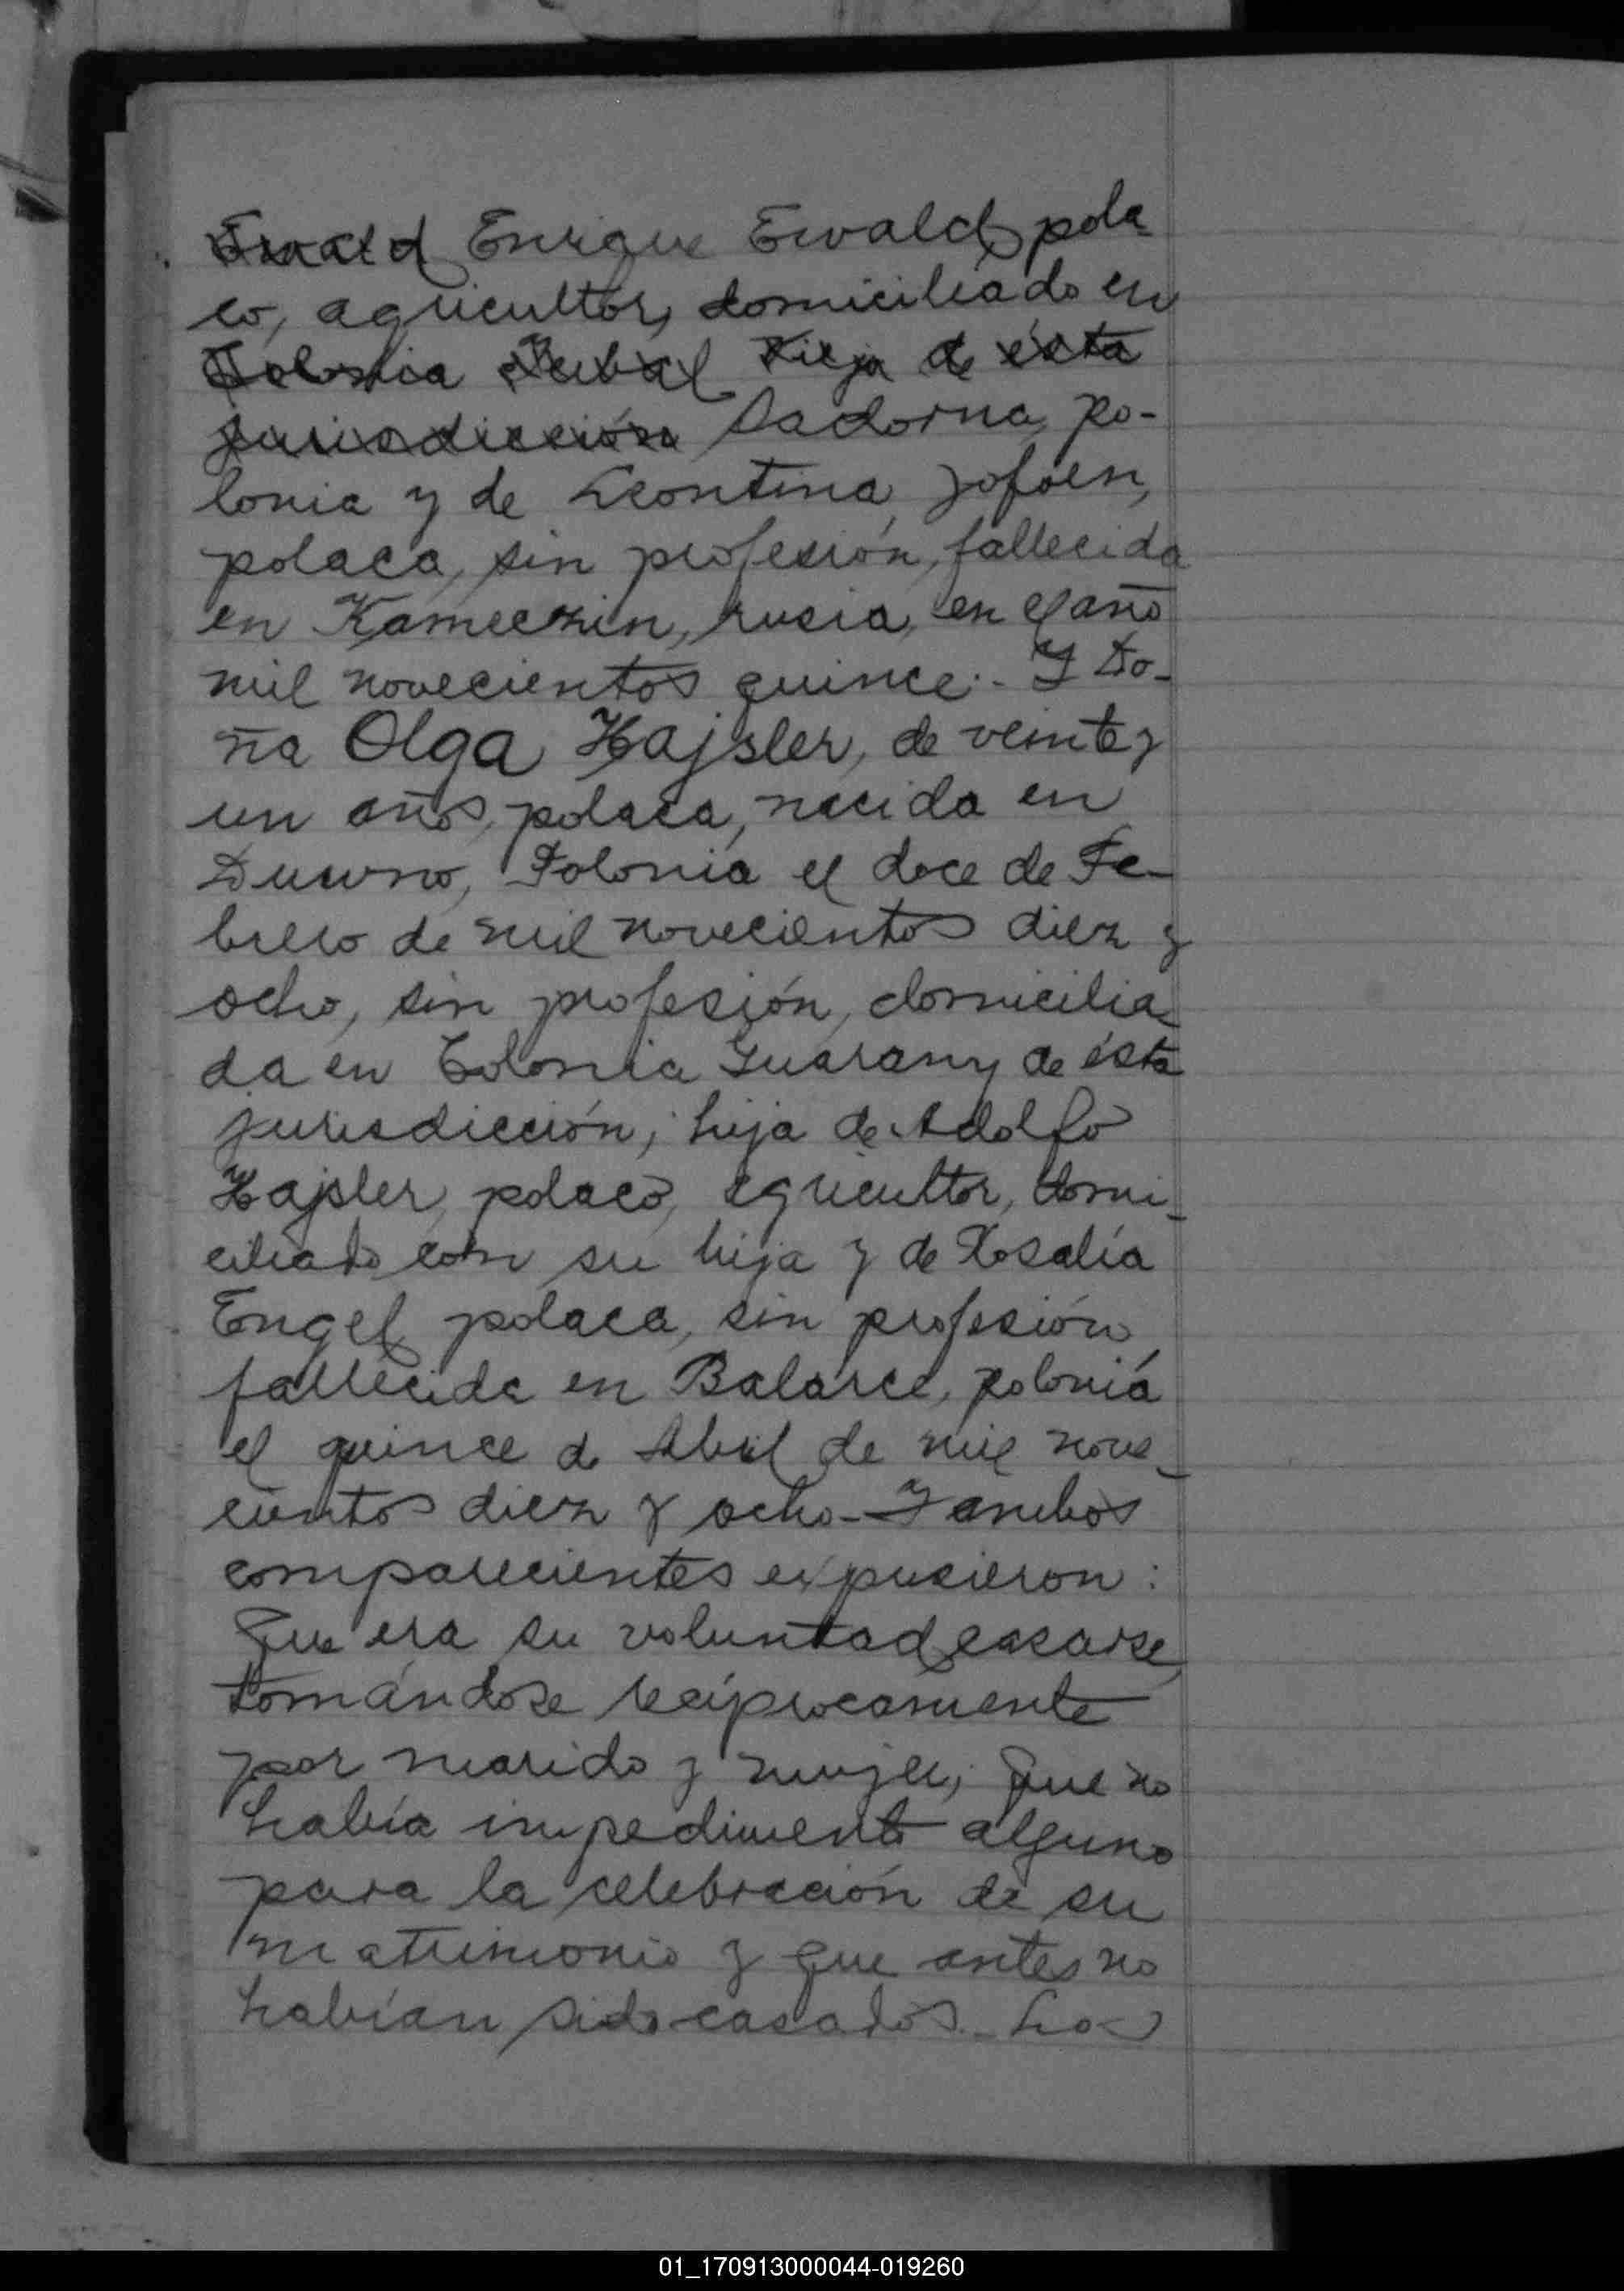 Ewald Enrique Ewald, pola
co, agricultor, domiciliado en
Colonia Yerbal Viejo de ésta
jurisdicción Sadorna, po-
lonia y de Leontina
polaca, sin profesión, fallecida
en Kameczin, rusia, en el año
mil novecientos quince.- Y Do-
ña Olga Hajsler, de veinte y
un años, polaca, nacida en
Duwno, Polonia el doce de Fe-
brero de mil novecientos diez y
ocho, sin profesión, domicilia
da en Colonia Guarany de ésta
jurisdicción; hija de Adolfo
Hajsler, polaco, agricultor, domi-
ciliado con su hija y de Rosalía
Engel, polaca, sin profesión,
fallecida en Balarce, polonia
el quince de Abril de mil nove-
cientos diez y ocho.- Y ambos
comparecientes expusieron:
Que era su voluntad casarse,
tomándose recíprocamente
por marido y mujer; Que no
había impedimento alguno
para la celebración de su
matrimonio y que antes no
habían sido casados.- Los
01_170913000044-019260